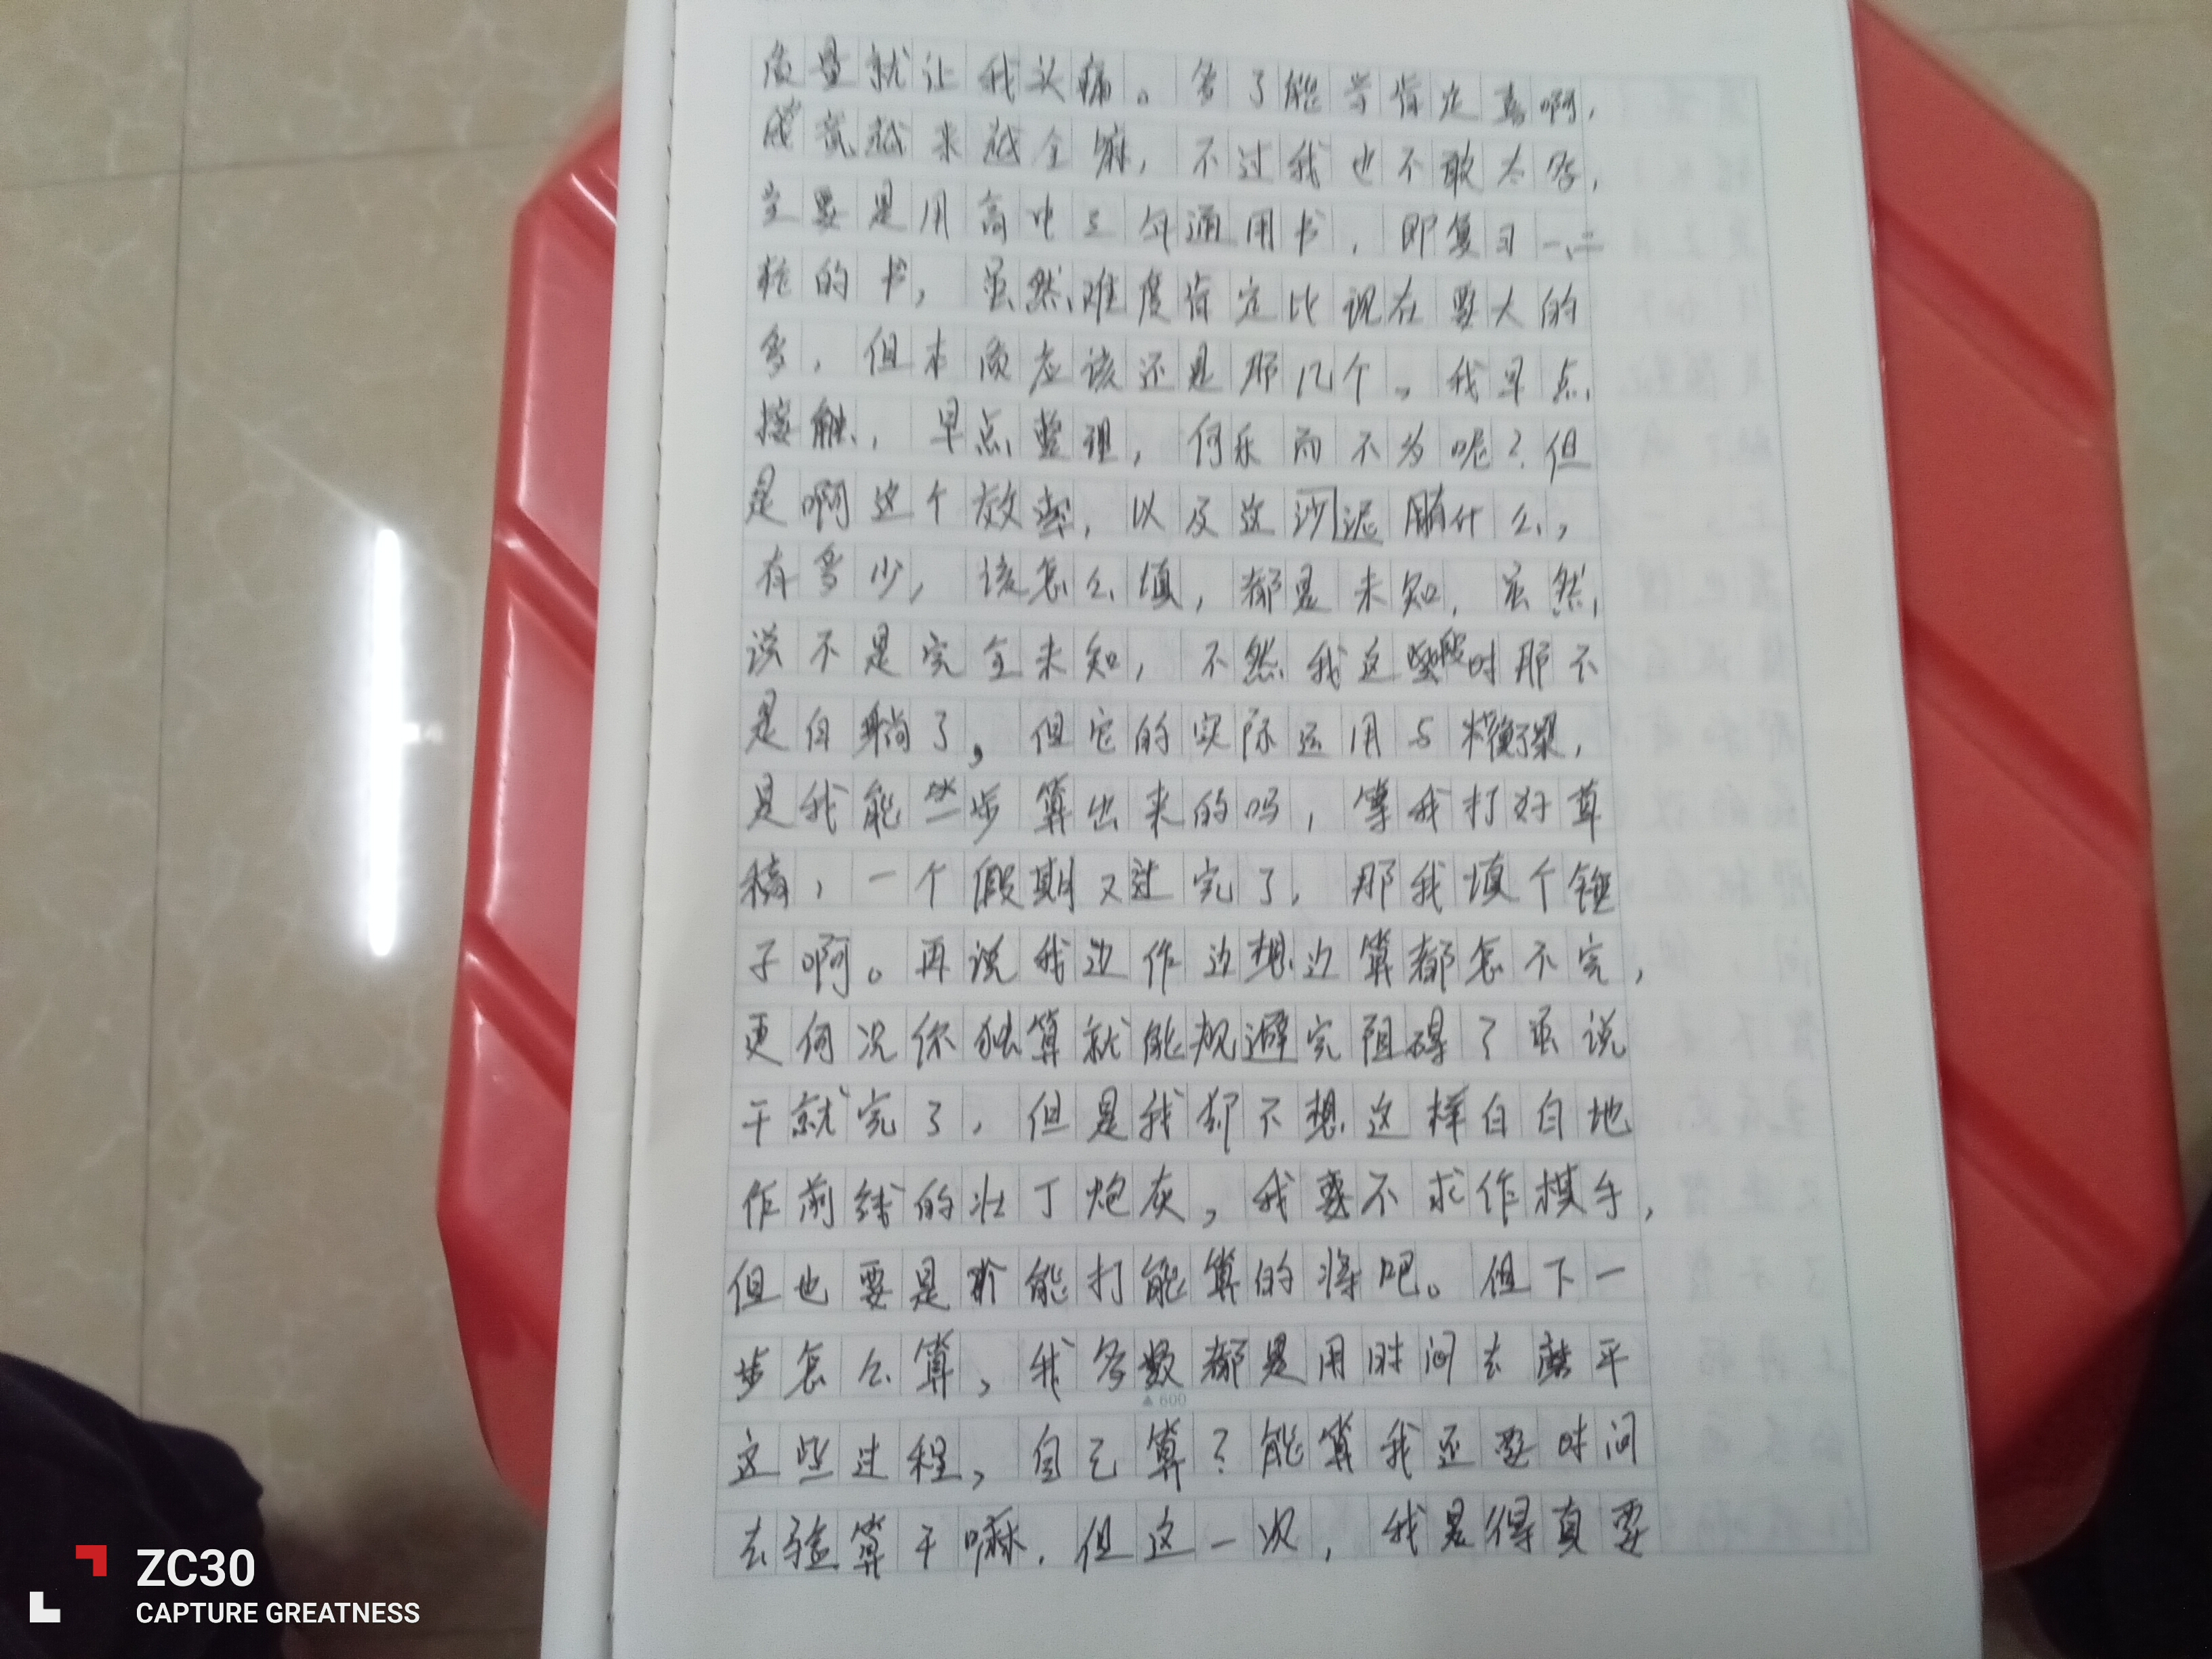 质量就让我头痛。多了能学肯定喜啊,
成就越来越全嘛,不过我也不敢太
主要是用高中三年通用书,即复习一、二
轮的书,虽然难度肯定比现在要大的
多,但本质应该还是那几个。我早点
接触,早点整理,何乐而不为呢?但
是啊这个效率,以及这沙泥有什么,
有多少,该怎么填,都是未知,虽然
说不是完全未知,不然我这段时那不
是白躺了,但它的实际运用与
是我能些步算出来的吗,等我打好草
稿,一个假期又过完了,那我填个锤
子啊。再说我边作边想边算都怎不完,
更何况你独算就能规避完阻碍了虽说
干就完了,但是我却不想这样白白地
作前线的壮丁炮灰,我不求作棋手,
但也要是能打能算的将吧。但下一
步怎么算,我多数都是用时间去磨平
这些过程,自己算?能算我还要时间
去验算干嘛.但这一次,我是得真要
▲600
ZC30
CAPTURE GREATNESS